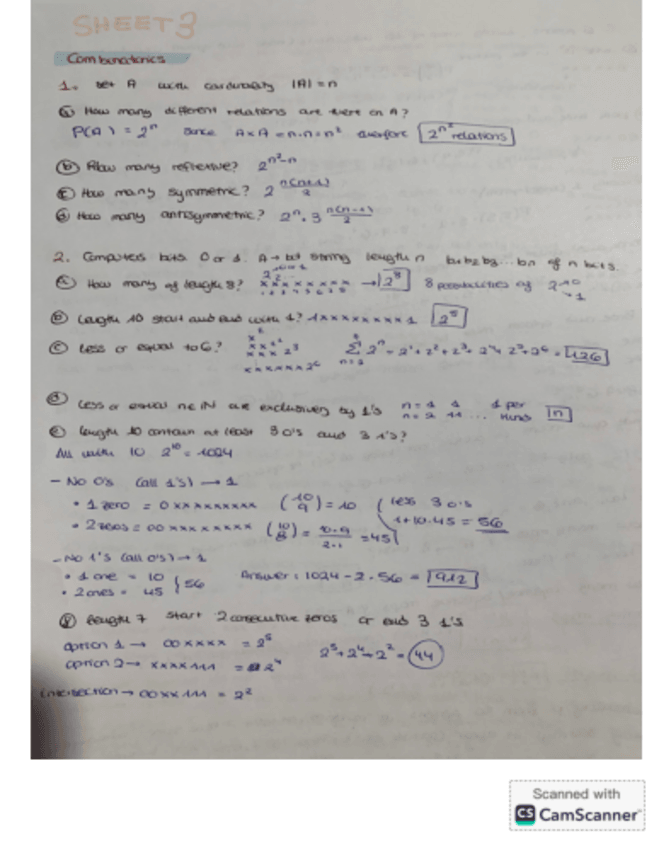 SHEET 3
Combinatorics
1. set A with cardinality |A| = n
ⓐ How many different relations are there on A?
P(A) = 2ⁿ since A×A = n·n = n² therefore 2^n² relations
ⓑ How many reflexive? 2^(n²-n)
ⓒ How many symmetric? 2^(n(n+1)/2)
ⓓ How many antisymmetric? 2ⁿ · 3^(n(n-1)/2)
2. Computers bits 0 or 1. A → bit string length n b₁ b₂ b₃ ... bn of n bits
ⓐ How many of length 8? x x x x x x x x → 2⁸ 8 possibilities of 2 → 0 → 1
1 2 3 4 5 6 7 8
ⓑ Length 10 start and end with 1? 1 x x x x x x x x 1 2⁸
ⓒ less or equal to 6? Σ 2ⁿ = 2¹ + 2² + 2³ + 2⁴ + 2⁵ + 2⁶ = 126
x x x 2³
x x x x x x 2⁶
ⓓ Less or equal n ∈ ℕ are exclusively by 1's n = 1 1 1 per
n = 2 11 ... n
ⓔ length 10 contain at least 3 0's and 3 1's?
All with 10 2¹⁰ = 1024
- No 0s (all 1's) → 1
• 1 zero = 0xxxxxxxxx (10 9) = 10 less 3 0's
• 2 zeros = 00xxxxxxxx (10 8) = 10·9 / 2·1 = 45 1+10+45 = 56
- No 1's (all 0's) → 1
• 1 one = 10 } 56 Answer: 1024 - 2·56 = 912
• 2 ones = 45
ⓕ length 7 start 2 consecutive zeros or end 3 1's
option 1 → 00xxxx = 2⁵ 2⁵ + 2⁴ - 2² = 44
option 2 → xxxx111 = 2⁴
intersection → 00xx111 = 2²
Scanned with
CS CamScanner